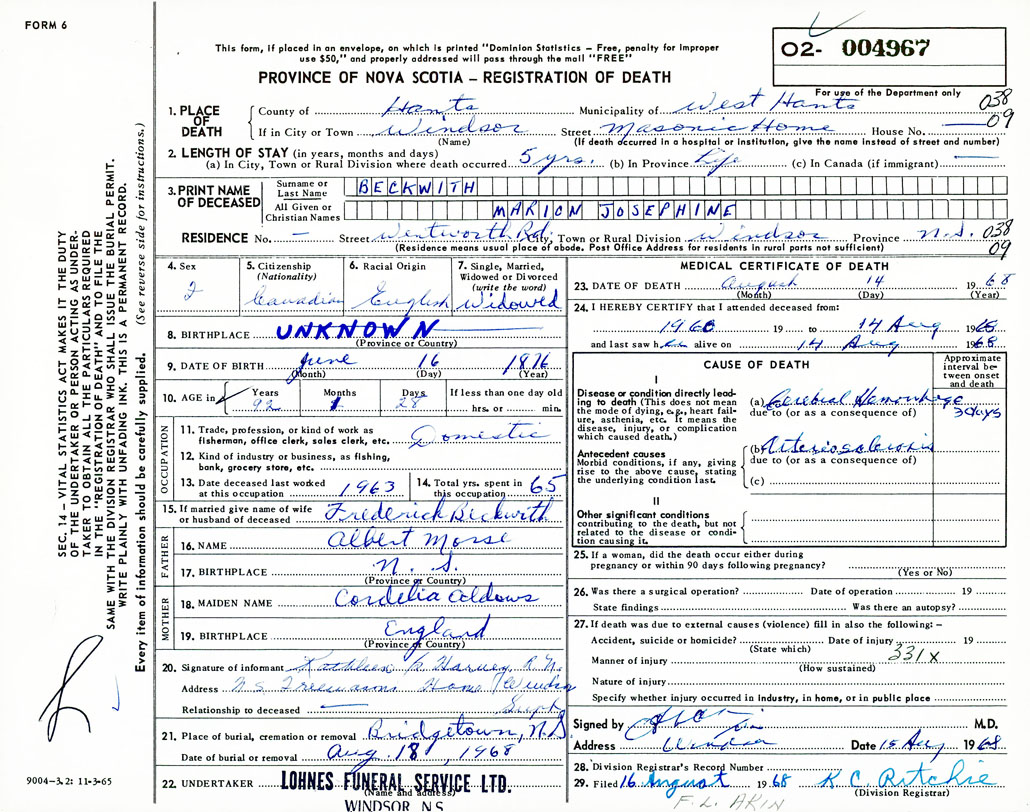 FORM 6
This form, if placed in an envelope, on which is printed "Dominion Statistics – Free, penalty for improper
use $50," and properly addressed will pass through the mail "FREE"
PROVINCE OF NOVA SCOTIA – REGISTRATION OF DEATH
O2- 004967
For use of the Department only
038
09
1. PLACE OF DEATH
County of Hants Municipality of West Hants
If in City or Town Windsor Street Masonic Home House No. —
(Name) (If death occurred in a hospital or institution, give the name instead of street and number)
2. LENGTH OF STAY (in years, months and days)
(a) In City, Town or Rural Division where death occurred 5 yrs. (b) In Province Life (c) In Canada (if immigrant) —
3. PRINT NAME OF DECEASED
Surname or Last Name BECKWITH
All Given or Christian Names MARION JOSEPHINE
RESIDENCE No. — Street Wentworth Rd. City, Town or Rural Division Windsor Province N.S. 038
(Residence means usual place of abode. Post Office Address for residents in rural parts not sufficient) 09
4. Sex
5. Citizenship (Nationality) Canadian
6. Racial Origin English
7. Single, Married, Widowed or Divorced (write the word) Widowed
8. BIRTHPLACE UNKNOWN
(Province or Country)
9. DATE OF BIRTH June 16 1876
(Month) (Day) (Year)
10. AGE in Years 92 Months 1 Days 28 If less than one day old
hrs. or min.
OCCUPATION
11. Trade, profession, or kind of work as
fisherman, office clerk, sales clerk, etc. Domestic
12. Kind of industry or business, as fishing,
bank, grocery store, etc.
13. Date deceased last worked
at this occupation 1963
14. Total yrs. spent in
this occupation 65
15. If married give name of wife
or husband of deceased Frederick Beckwith
FATHER
16. NAME Albert Morse
17. BIRTHPLACE N. S.
(Province or Country)
MOTHER
18. MAIDEN NAME Cordelia
19. BIRTHPLACE England
(Province or Country)
20. Signature of informant Kathleen Harvey R.N.
Address N.S. Freemasons Home Windsor
Relationship to deceased — Supt
21. Place of burial, cremation or removal Bridgetown, N.S.
Date of burial or removal Aug. 18, 1968
22. UNDERTAKER LOHNES FUNERAL SERVICE LTD.
(Name and address)
WINDSOR N.S.
MEDICAL CERTIFICATE OF DEATH
23. DATE OF DEATH August 14 1968
(Month) (Day) (Year)
24. I HEREBY CERTIFY that I attended deceased from:
1960 19 to 14 Aug 1968
and last saw her alive on 14 Aug 1968
CAUSE OF DEATH
Approximate interval between onset and death
I
Disease or condition directly leading to death (This does not mean
the mode of dying, e.g., heart failure, asthenia, etc. it means the
disease, injury, or complication
which caused death.)
(a) Cerebral Hemorrhage
due to (or as a consequence of) 3 days
Antecedent causes
Morbid conditions, if any, giving
rise to the above cause, stating
the underlying condition last.
(b) Arteriosclerosis
due to (or as a consequence of)
(c)
II
Other significant conditions
contributing to the death, but not
related to the disease or condition causing it.
25. If a woman, did the death occur either during
pregnancy or within 90 days following pregnancy?
(Yes or No)
26. Was there a surgical operation? Date of operation 19
State findings Was there an autopsy?
27. If death was due to external causes (violence) fill in also the following: –
Accident, suicide or homicide? Date of injury 19
(State which) 331X
Manner of injury
(How sustained)
Nature of injury
Specify whether injury occurred in industry, in home, or in public place
Signed by M.D.
Address Windsor Date 15 Aug 1968
28. Division Registrar's Record Number
29. Filed 16 August 1968 R. C. Ritchie
(Division Registrar)
F. L. AKIN
SEC. 14 – VITAL STATISTICS ACT MAKES IT THE DUTY
OF THE UNDERTAKER OR PERSON ACTING AS UNDER-
TAKER TO OBTAIN ALL THE PARTICULARS REQUIRED
IN THE "REGISTRATION OF DEATH" AND TO FILE THE
SAME WITH THE DIVISION REGISTRAR WHO SHALL ISSUE THE BURIAL PERMIT.
WRITE PLAINLY WITH UNFADING INK. THIS IS A PERMANENT RECORD.
Every item of information should be carefully supplied. (See reverse side for instructions.)
9004-3.21: 11-3-65